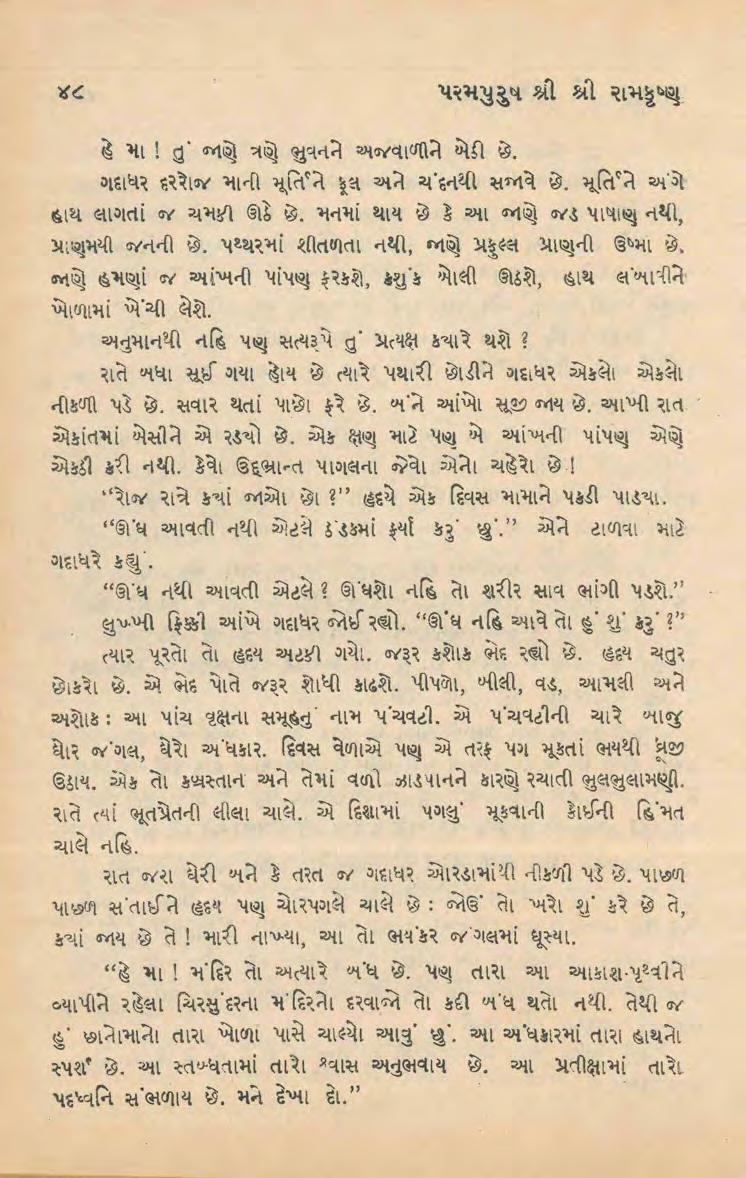 ૪૮ પરમપુરુષ શ્રી શ્રી રામકૃષ્ણ
હે મા ! તું જાણે ત્રણે ભુવનને અજવાળીને બેઠી છે.
ગદાધર દરરોજ માની મૂર્તિને ફૂલ અને ચંદનથી સજાવે છે. મૂર્તિને અંગે
હાથ લાગતાં જ ચમકી ઊઠે છે. મનમાં થાય છે કે આ જાણે જડ પાષાણ નથી,
પ્રાણમયી જનની છે. પથ્થરમાં શીતળતા નથી, જાણે પ્રફુલ્લ પ્રાણની ઉષ્મા છે.
જાણે હમણાં જ આંખની પાંપણ ફરકશે, કશુંક બોલી ઊઠશે, હાથ લંબાવીને
ખોળામાં ખેંચી લેશે.
અનુમાનથી નહિ પણ સત્યરૂપે તું પ્રત્યક્ષ ક્યારે થશે ?
રાતે બધા સૂઈ ગયા હોય છે ત્યારે પથારી છોડીને ગદાધર એકલો એકલો
નીકળી પડે છે. સવાર થતાં પાછો ફરે છે. બંને આંખો સૂજી જાય છે. આખી રાત
એકાંતમાં બેસીને એ રડ્યો છે. એક ક્ષણ માટે પણ બે આંખની પાંપણ એણે
એકઠી કરી નથી. કેવો ઉદ્દભ્રાન્ત પાગલના જેવો એનો ચહેરો છે !
“રોજ રાત્રે ક્યાં જાઓ છો ?” હૃદયે એક દિવસ મામાને પકડી પાડ્યા.
“ઊંઘ આવતી નથી એટલે ઠંડકમાં ફર્યા કરું છું.” એને ટાળવા માટે
ગદાધરે કહ્યું.
“ઊંઘ નથી આવતી એટલે ? ઊંઘશો નહિ તો શરીર સાવ ભાંગી પડશે.”
લુખ્ખી ફિક્કી આંખે ગદાધર જોઈ રહ્યો. “ઊંઘ નહિ આવે તો હું શું કરું ?”
ત્યાર પૂરતો તો હૃદય અટકી ગયો. જરૂર કશોક ભેદ રહ્યો છે. હૃદય ચતુર
છોકરો છે. એ ભેદ પોતે જરૂર શોધી કાઢશે. પીપળો, બીલી, વડ, આમલી અને
અશોક : આ પાંચ વૃક્ષના સમૂહનું નામ પંચવટી. એ પંચવટીની ચારે બાજુ
ઘોર જંગલ, ઘેરો અંધકાર. દિવસ વેળાએ પણ એ તરફ પગ મૂકતાં ભયથી ધ્રૂજી
ઉઠાય. એક તો કબ્રસ્તાન અને તેમાં વળી ઝાડપાનને કારણે રચાતી ભુલભુલામણી.
રાતે ત્યાં ભૂતપ્રેતની લીલા ચાલે. એ દિશામાં પગલું મૂકવાની કોઈની હિંમત
ચાલે નહિ.
રાત જરા ઘેરી બને કે તરત જ ગદાધર ઓરડામાંથી નીકળી પડે છે. પાછળ
પાછળ સંતાઈને હૃદય પણ ચોરપગલે ચાલે છે : જોઉં તો ખરો શું કરે છે તે,
ક્યાં જાય છે તે ! મારી નાખ્યા, આ તો ભયંકર જંગલમાં ઘૂસ્યા.
“હે મા ! મંદિર તો અત્યારે બંધ છે. પણ તારા આ આકાશ-પૃથ્વીને
વ્યાપીને રહેલા ચિરસુંદરના મંદિરનો દરવાજો તો કદી બંધ થતો નથી. તેથી જ
હું છાનોમાનો તારા ખોળા પાસે ચાલ્યો આવું છું. આ અંધકારમાં તારા હાથનો
સ્પર્શ છે. આ સ્તબ્ધતામાં તારો શ્વાસ અનુભવાય છે. આ પ્રતીક્ષામાં તારો
પદધ્વનિ સંભળાય છે. મને દેખા દો.”